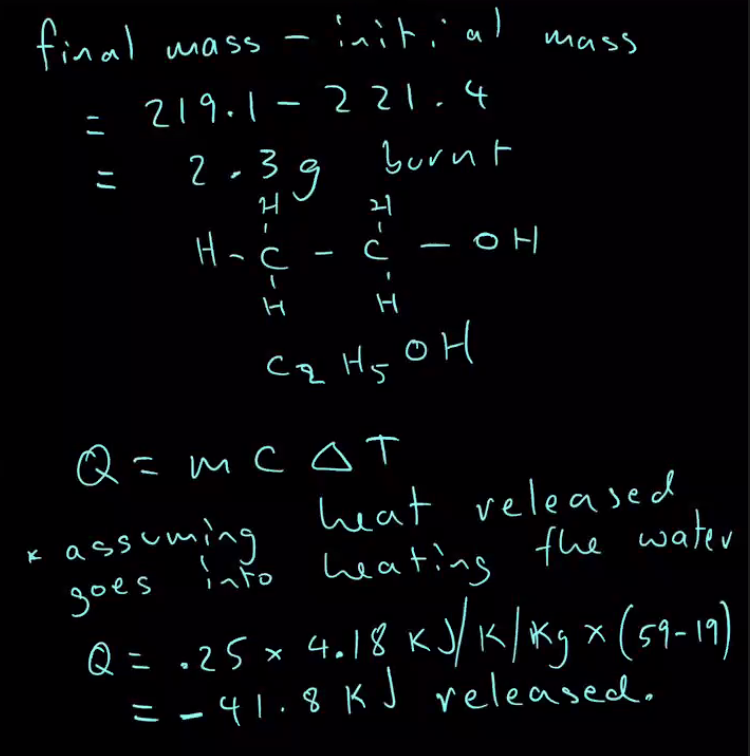 final mass - initial mass
= 219.1 - 221.4
= 2.3g burnt
H H
H - C - C - OH
H H
C2H5OH
Q = mCΔT
* assuming heat released
goes into heating the water
Q = .25 × 4.18 KJ/K/Kg × (59-19)
= -41.8 KJ released.